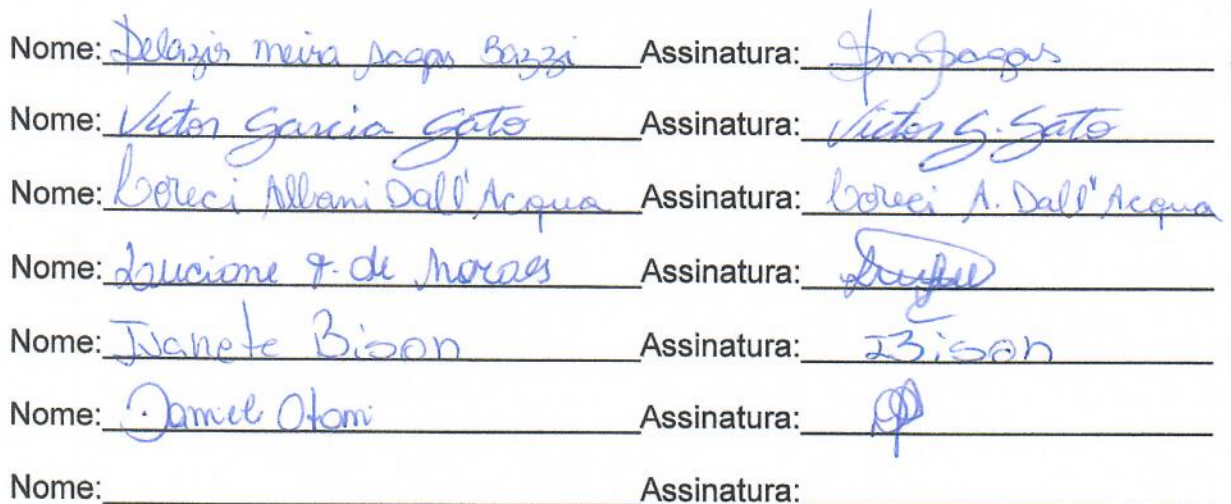 Nome: Delazir Meira Sagas Bazzi Assinatura: DmSagas
Nome: Victor Garcia Gato Assinatura: Victor G. Gato
Nome: Loreci Albani Dall'Acqua Assinatura: Loreci A. Dall'Acqua
Nome: Luciane F. de Moraes Assinatura:
Nome: Ivanete Bison Assinatura: IBison
Nome: Daniel Otoni Assinatura:
Nome: Assinatura: